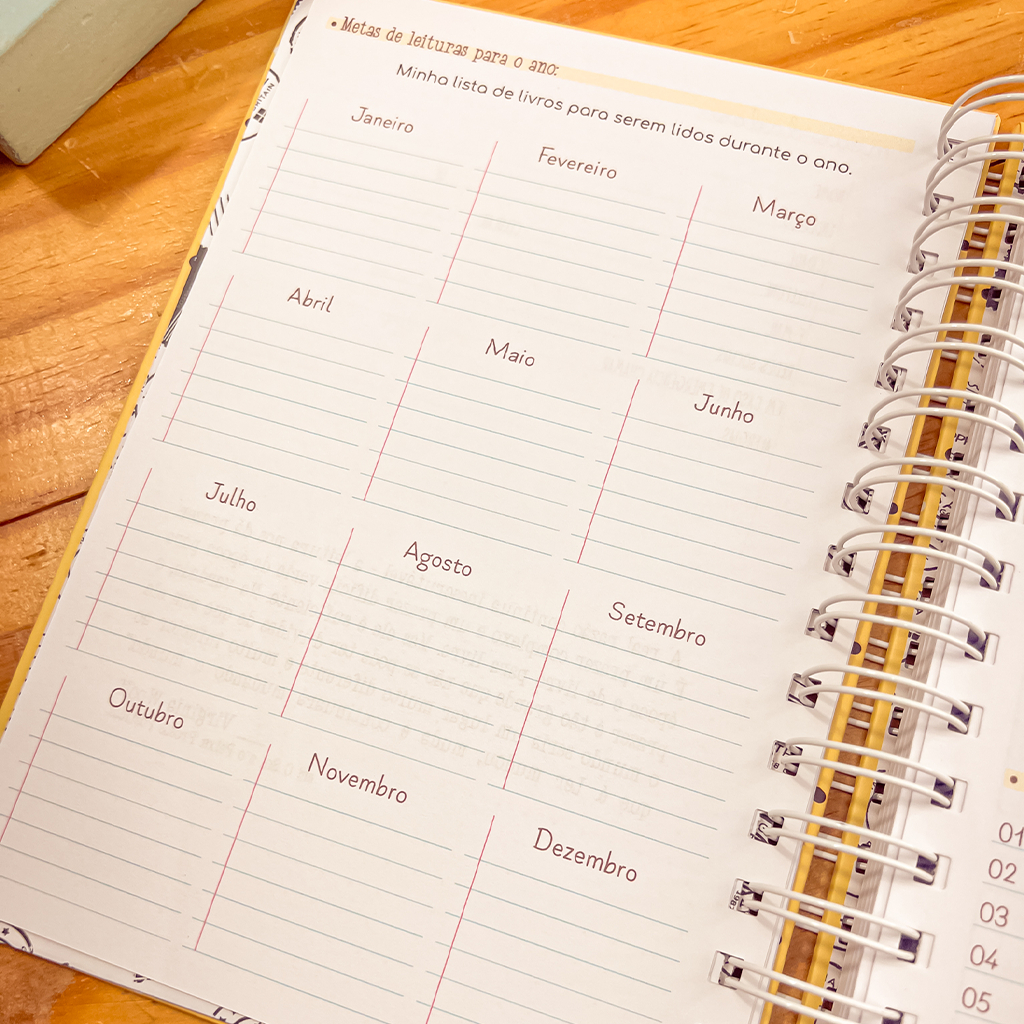 • Metas de leituras para o ano:
Minha lista de livros para serem lidos durante o ano.
Janeiro
Fevereiro
Março
Abril
Maio
Junho
Julho
Agosto
Setembro
Outubro
Novembro
Dezembro
01
02
03
04
05